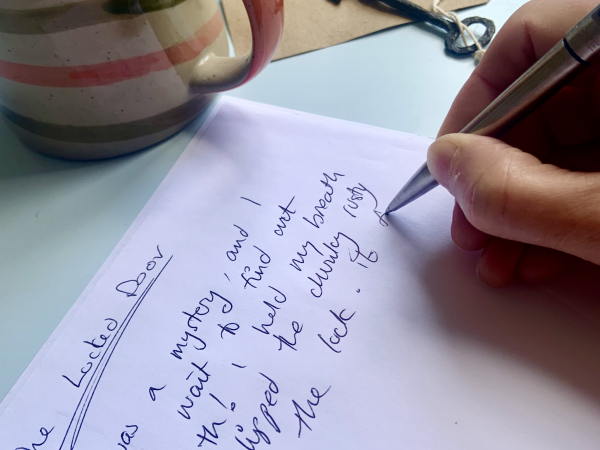 The Locked Door
was a mystery, and I
wait to find out
th! I held my breath
slipped the chunky rusty
the lock. It